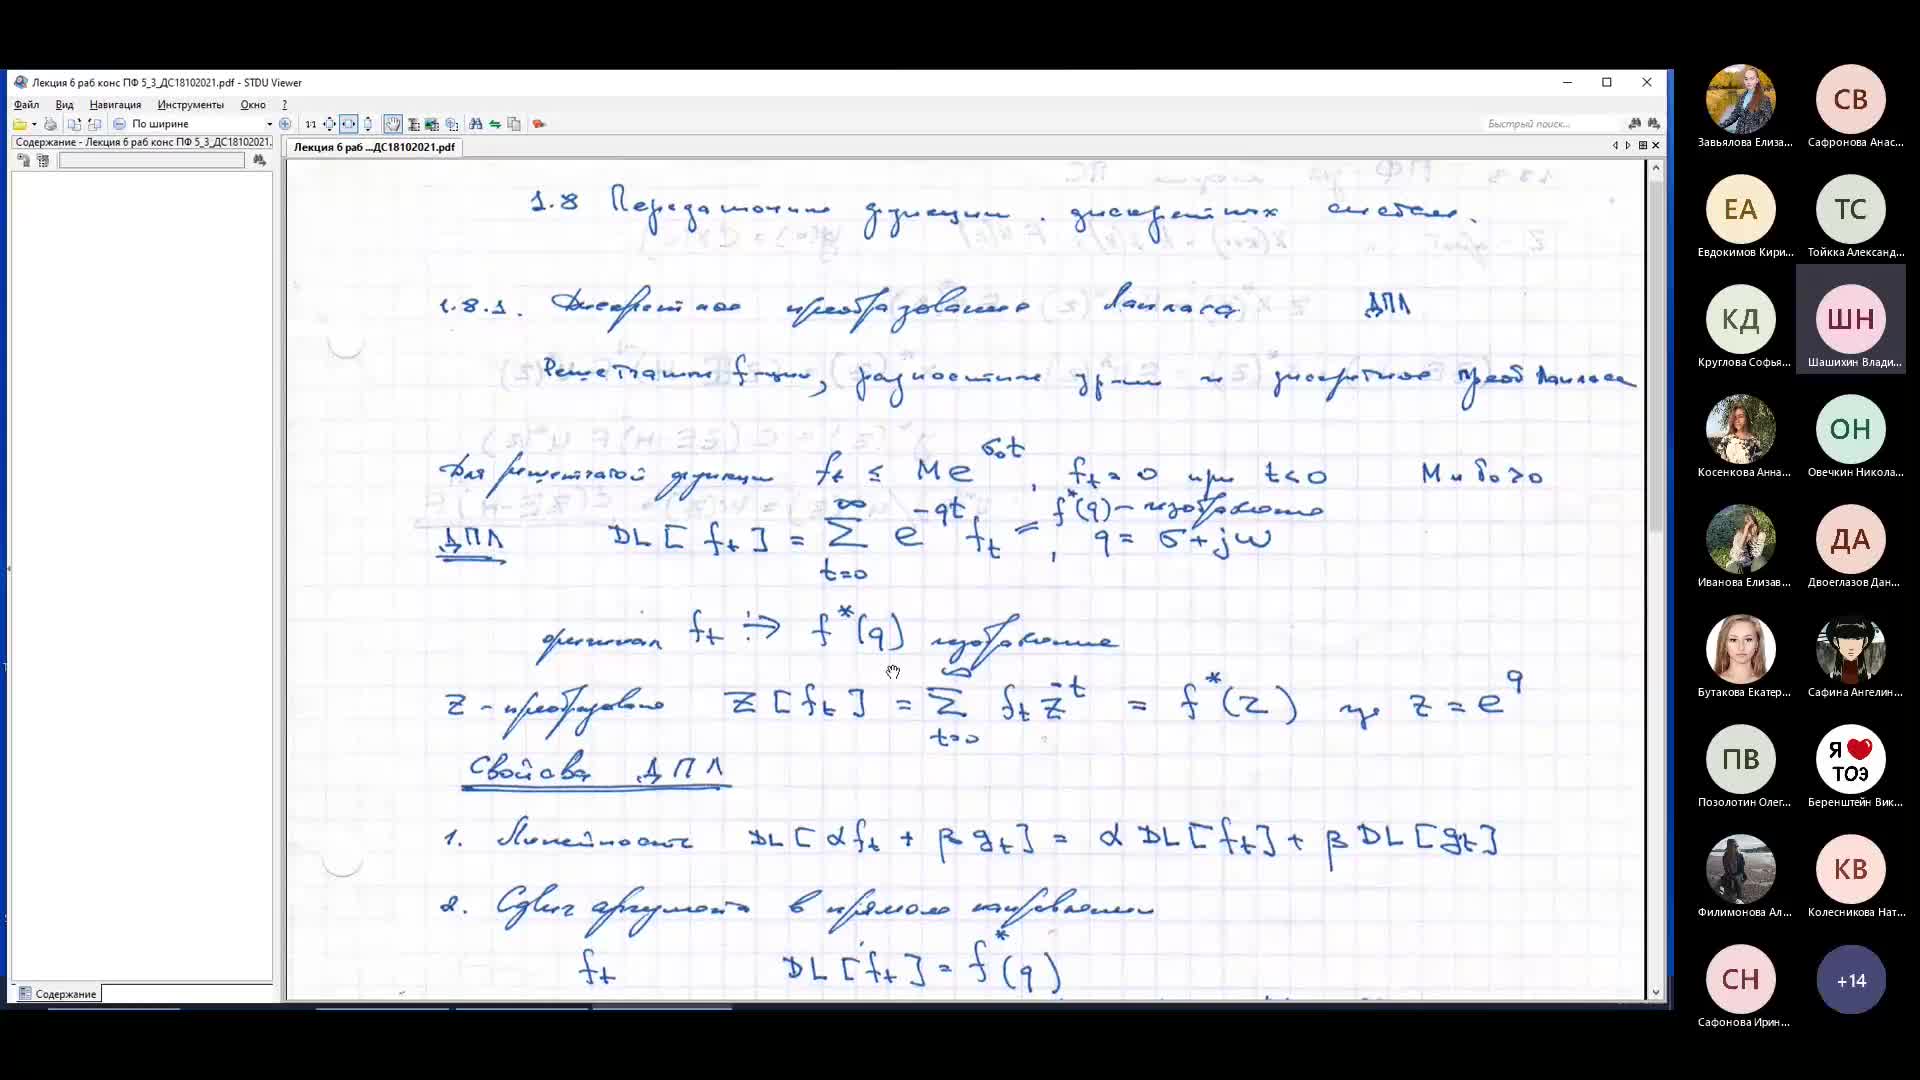 Лекция 6 раб конс ПФ 5_3_ДС18102021.pdf - STDU Viewer
Файл Вид Навигация Инструменты Окно ?
По ширине
Быстрый поиск...
Содержание - Лекция 6 раб конс ПФ 5_3_ДС18102021.
Лекция 6 раб ...ДС18102021.pdf
1.8 Передаточные функции дискретных систем.
1.8.1. Дискретное преобразование Лапласа ДПЛ
Решетчатые ф-ции, разностные ур-ния и дискретное преоб Лапласа
Для решетчатой функции fₜ ≤ M e^{σ₀t}, fₜ = 0 при t<0 M и σ₀>0
ДПЛ DL[fₜ] = ∑_{t=0}^{∞} e^{-qt} fₜ = f*(q) - изображение, q = σ + jω
оригинал fₜ ⇒ f*(q) изображение
Z - преобразование Z[fₜ] = ∑_{t=0}^{∞} fₜ z^{-t} = f*(z) где z = e^q
Свойства ДПЛ
1. Линейность DL[αfₜ + βgₜ] = αDL[fₜ] + βDL[gₜ]
2. Сдвиг аргумента в прямом направлении
fₜ DL[fₜ] = f*(q)
Содержание
Завьялова Елиза...
СВ
Сафронова Анас...
ЕА
Евдокимов Кири...
ТС
Тойкка Александ...
КД
Круглова Софья...
ШН
Шашихин Влади...
Косенкова Анна...
ОН
Овечкин Никола...
Иванова Елизав...
ДА
Двоеглазов Дан...
Бутакова Екатер...
Сафина Ангелин...
ПВ
Позолотин Олег...
Я ❤
ТОЭ
Беренштейн Вик...
Филимонова Ал...
КВ
Колесникова Нат...
СН
Сафонова Ирин...
+14